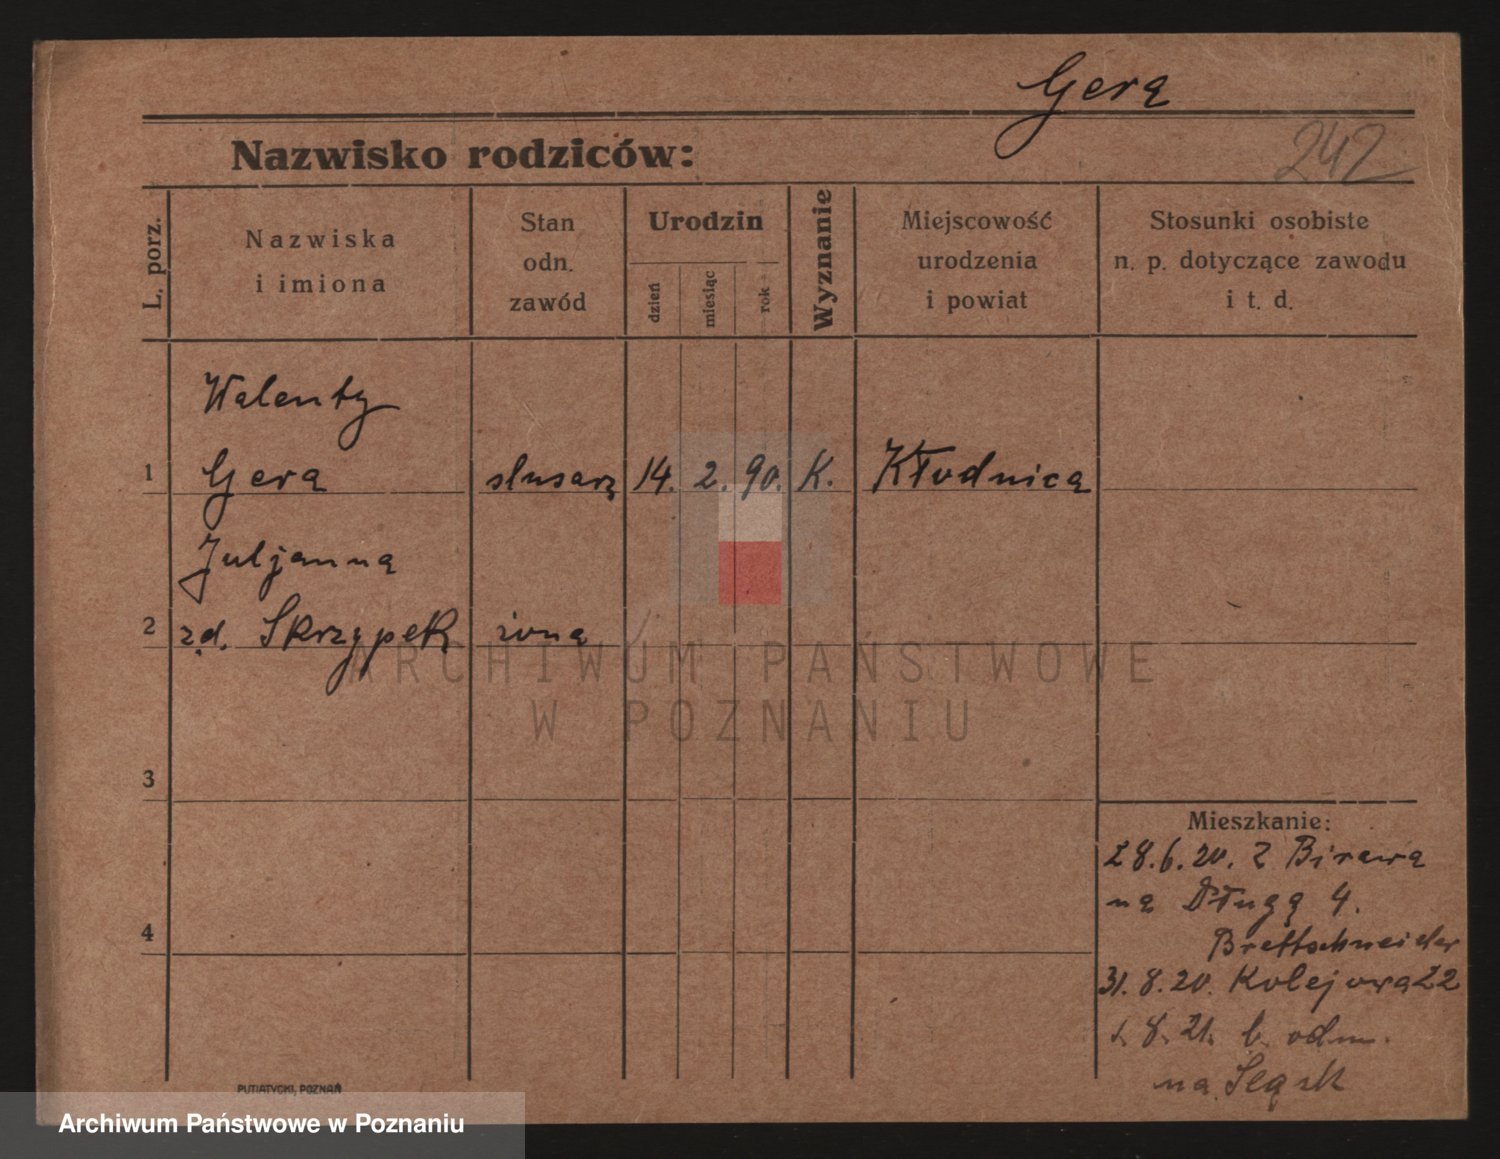 Gera
Nazwisko rodziców:
242
L. porz.
Nazwiska
i imiona
Stan
odn.
zawód
Urodzin
dzień
miesiąc
rok
Wyznanie
Miejscowość
urodzenia
i powiat
Stosunki osobiste
n. p. dotyczące zawodu
i t. d.
Walenty
1 Gera ślusarz 14. 2. 90. K. Kłodnica
Juljanna
2 z d. Skrzypek żona
3
4
Mieszkanie:
28.6.20. z Birawa
na Długą 4.
Brettschneider
31.8.20. Kolejowa 22
8. 21. b. odm.
na Śląsk
PUTIATYCKI, POZNAŃ
ARCHIWUM PAŃSTWOWE
W POZNANIU
Archiwum Państwowe w Poznaniu